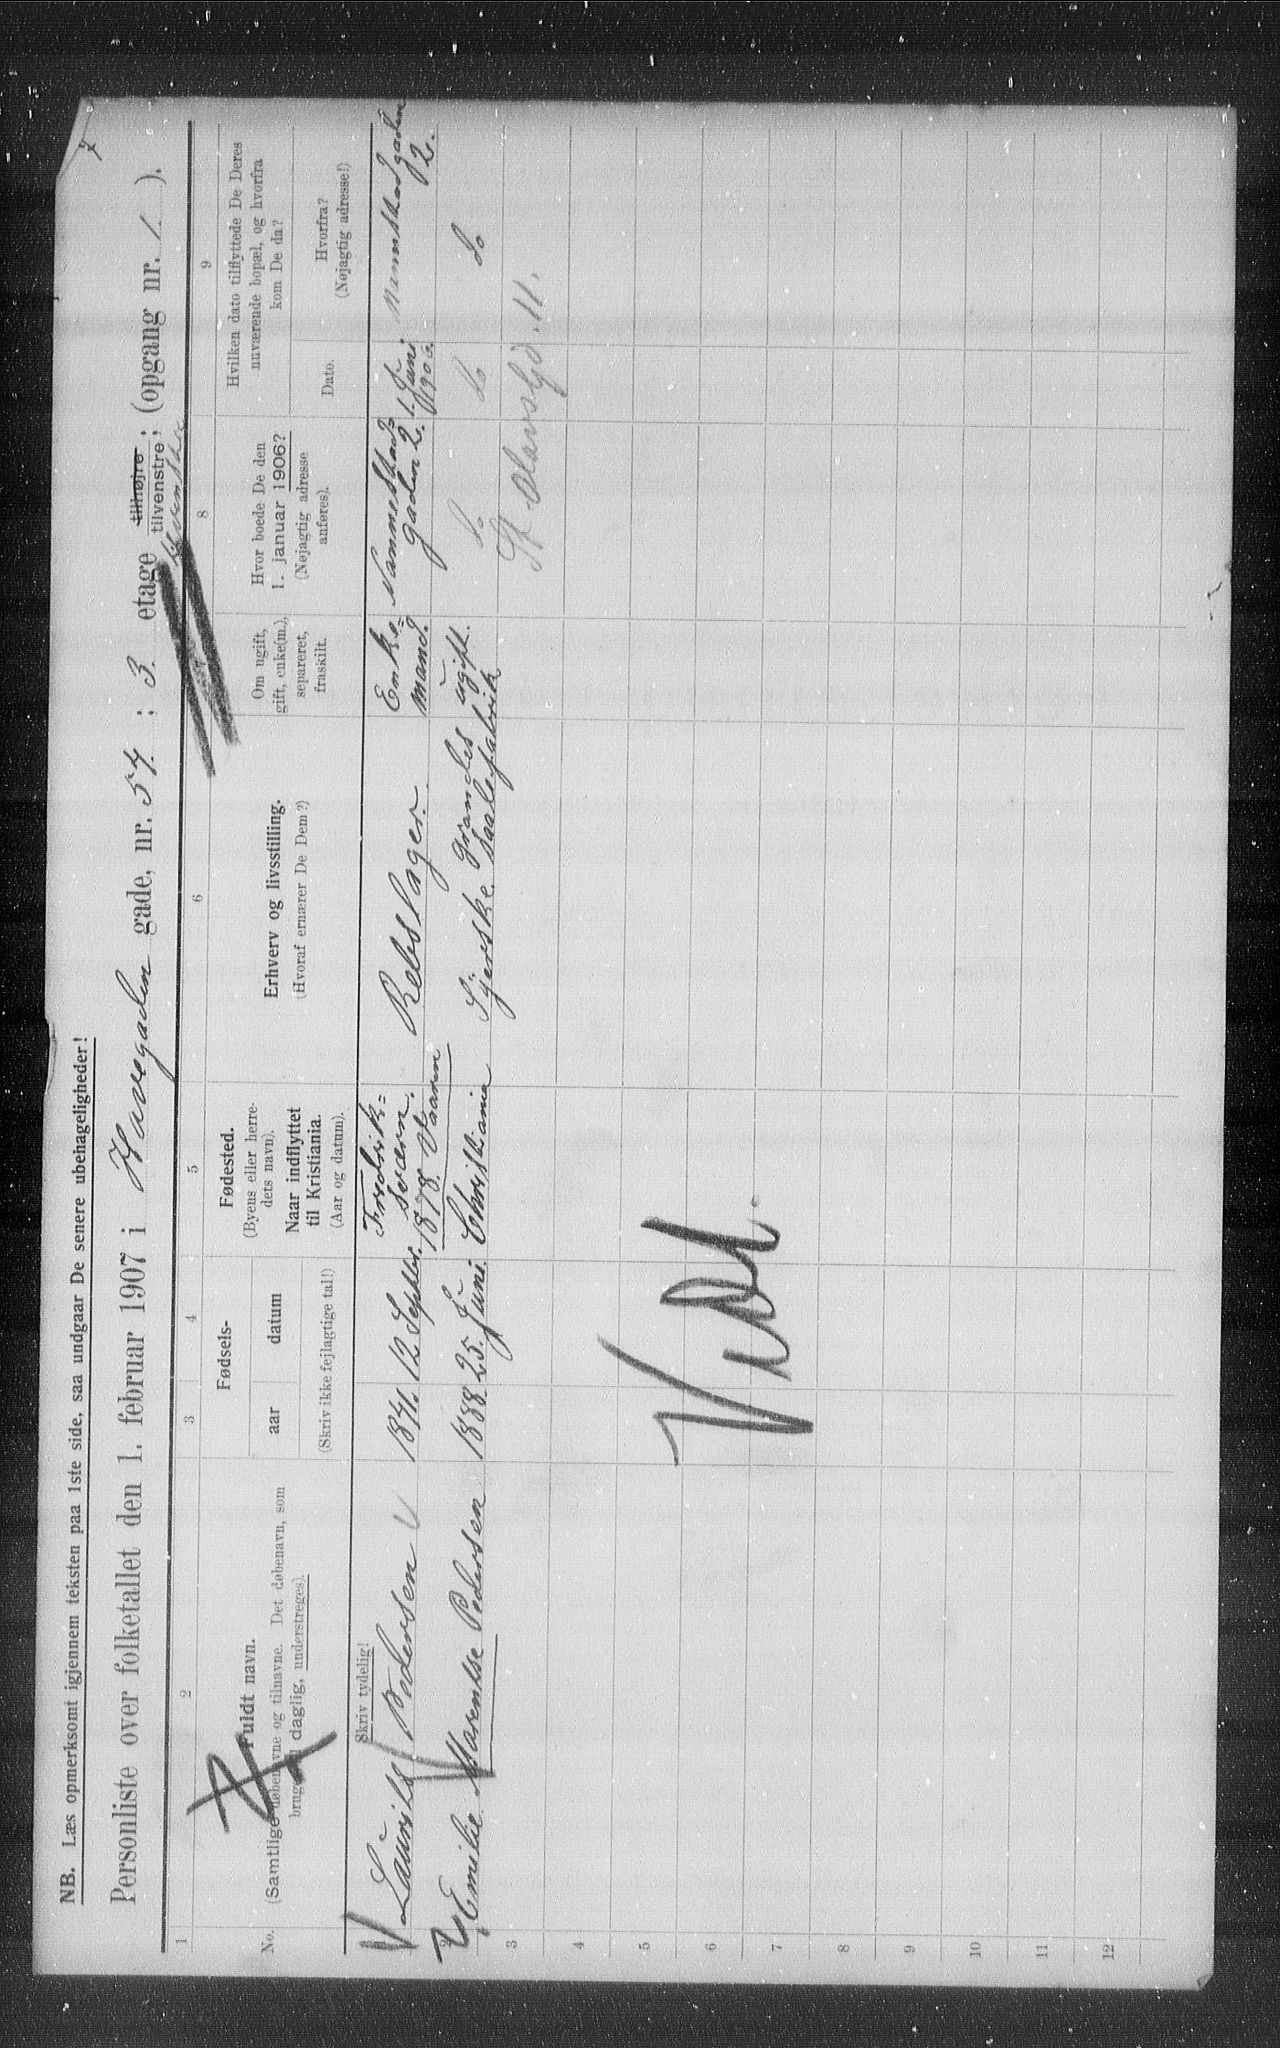 NB. Læs opmerksomt igjennem teksten paa 1ste side, saa undgaar De senere ubehageligheder!
Personliste over folketallet den 1. februar 1907 i Havegaden gade, nr. 57 ; 3 etage tilhøjre tilvenstre ; (opgang nr. 1. ).
1 2 3 4 5 6 8 9
No.
Fuldt navn.
(Samtlige døbenavne og tilnavne. Det døbenavn, som
daglig, understreges).
Fødsels-
aar datum
(Skriv ikke fejlagtige tal!)
Fødested.
(Byens eller herre-
dets navn).
Naar indflyttet
til Kristiania.
(Aar og datum).
Erhverv og livsstilling.
(Hvoraf ernærer De Dem?)
Om ugift,
gift, enke(m.),
separeret,
fraskilt.
Hvor boede De den
1. januar 1906?
(Nøjagtig adresse
anføres).
Hvilken dato tilflyttede De Deres
nuværende bopæl, og hvorfra
kom De da?
Dato.
Hvorfra?
(Nøjagtig adresse!)
Skriv tydelig!
Lauritz Pedersen 1841. 12 Septbr. Fredriks=
sværn.
1878 Vaaren Rebslager. Enke=
mand. Nannestad=
gaden 2. 1. Juni
1906. Nannestadgaden
2.
2 Emilie Marentse Pedersen 1888 25. Juni. Christiania Syerske. Grandes
Saalefabrik ugift. do do do
3 St Olavsgd. 11.
4
5
6
7
8
9
10
11
12